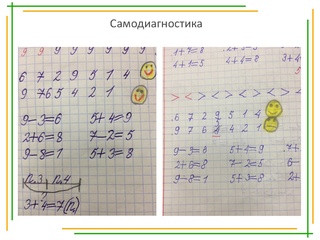 Самодиагностика
9 9 9 9 9 9 9 9 9
6 7 2 9 5 1 4
9 7 6 5 4 2 1
9-3=6 5+4=9
2+6=8 7-2=5
9-8=1 5+3=8
3+4=7
4+1=5 4+4=8
> < > < > < > < >
6 7 2 9 5 1 4
9 7 6 4 2 1
9-3=6 5+4=9
2+6=8 7-2=5
9-8=1 5+3=8